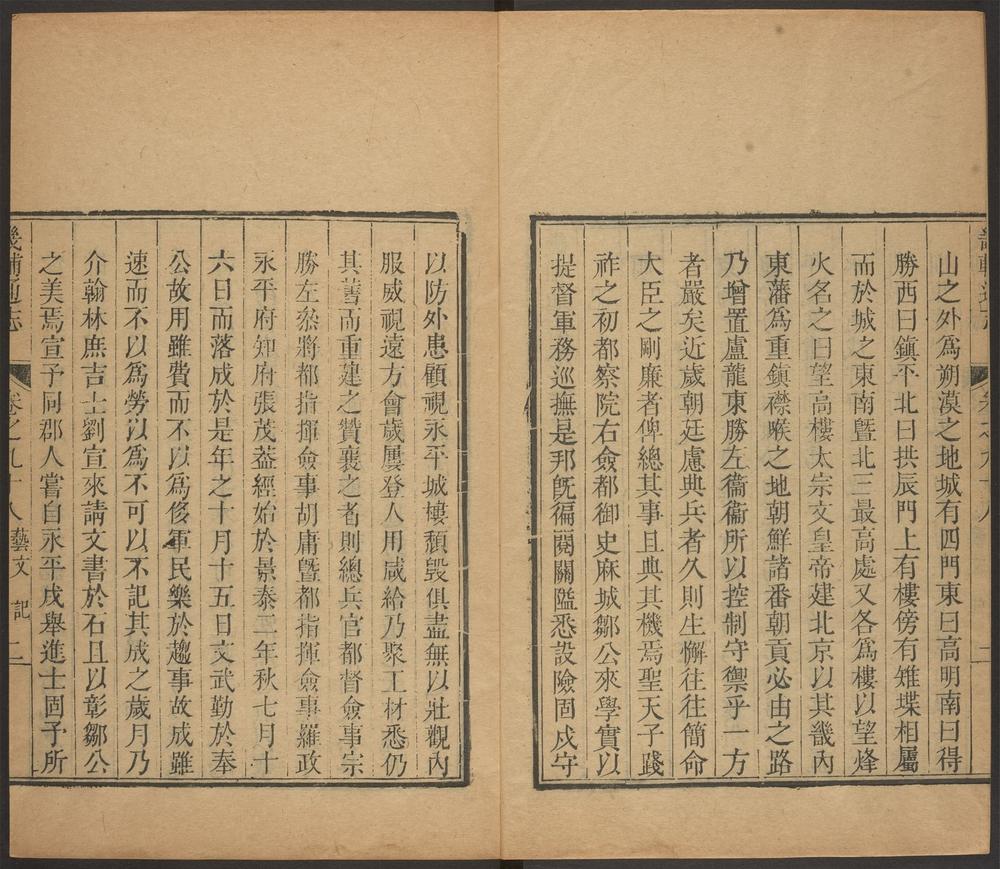 畿輔通志
卷之九十八
山之外爲朔漠之地城有四門東曰高明南曰得
勝西曰鎭平北曰拱辰門上有樓傍有雉堞相屬
而於城之東南曁北三最高處又各爲樓以望烽
火名之曰望高樓太宗文皇帝建北京以其畿內
東藩爲重鎭襟喉之地朝鮮諸番朝貢必由之路
乃增置盧龍東勝左衞衞所以控制守禦乎一方
者嚴矣近歲朝廷慮典兵者久則生懈往往簡命
大臣之剛廉者俾總其事且典其機焉聖天子踐
祚之初都察院右僉都御史麻城鄒公來學實以
提督軍務巡撫是邦旣徧閱關隘悉設險固戍守
以防外患顧視永平城樓頹毀俱盡無以壯觀內
服威視遠方會歲屢登人用咸給乃聚工材悉仍
其舊而重建之贊襄之者則總兵官都督僉事宗
勝左叅將都指揮僉事胡庸曁都指揮僉事羅政
永平府知府張茂葢經始於景泰二年秋七月十
六日而落成於是年之十月十五日文武勤於奉
公故用雖費而不以爲侈軍民樂於趨事故成雖
速而不以爲勞以爲不可以不記其成之歲月乃
介翰林庶吉士劉宣來請文書於石且以彰鄒公
之美焉宣予同郡人嘗自永平戍舉進士固予所
畿輔通志
卷之九十八
藝文 記
二